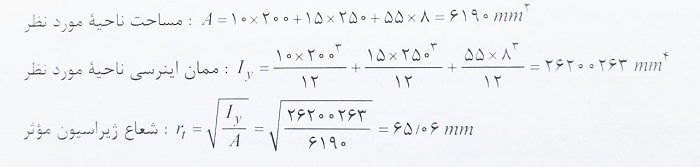 مساحت ناحیهٔ مورد نظر : A = ۱۰×۲۰۰+۱۵×۲۵۰+۵۵×۸ = ۶۱۹۰ mm^۲
ممان اینرسی ناحیهٔ مورد نظر : I_y = (۱۰×۲۰۰^۳)/۱۲ + (۱۵×۲۵۰^۳)/۱۲ + (۵۵×۸^۳)/۱۲ = ۲۶۲۰۰۲۶۳ mm^۴
شعاع ژیراسیون مؤثر : r_t = √(I_y/A) = √(۲۶۲۰۰۲۶۳/۶۱۹۰) = ۶۵/۰۶ mm